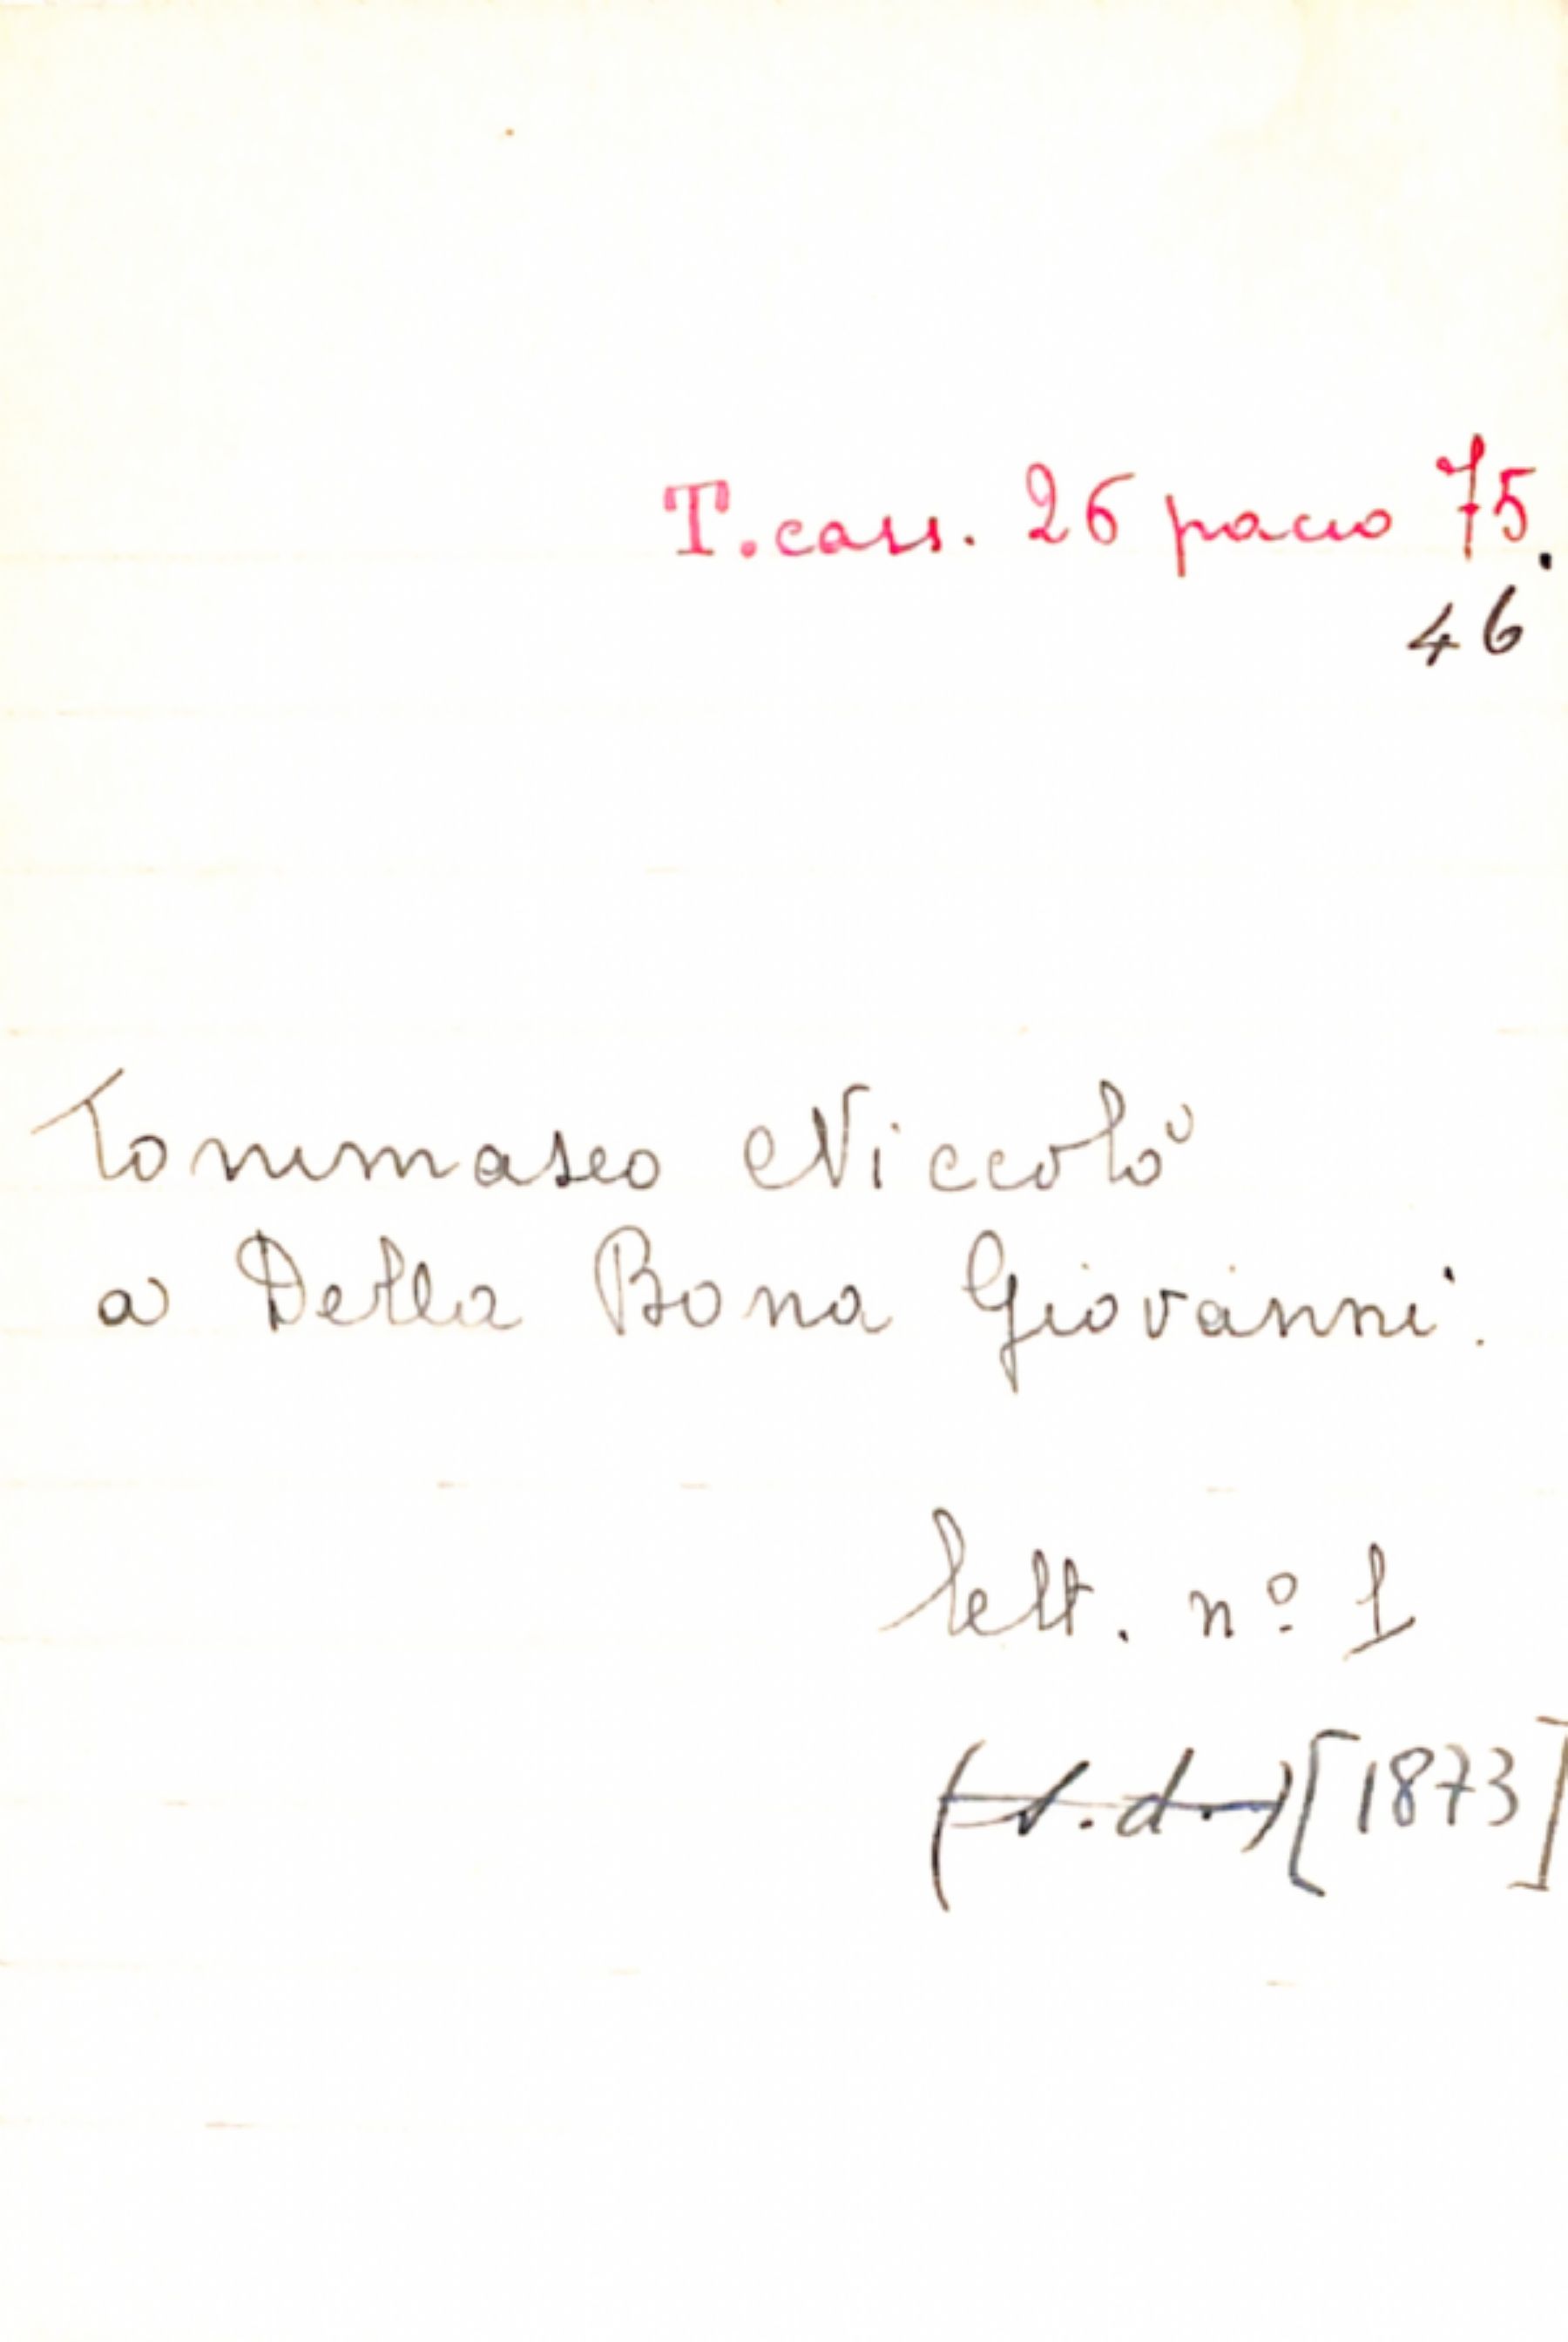 T. cass. 26 pacco 75.
46
Tommaseo Niccolò
a Della Bona Giovanni.
lett. nº 1
(s.d.) [1873]